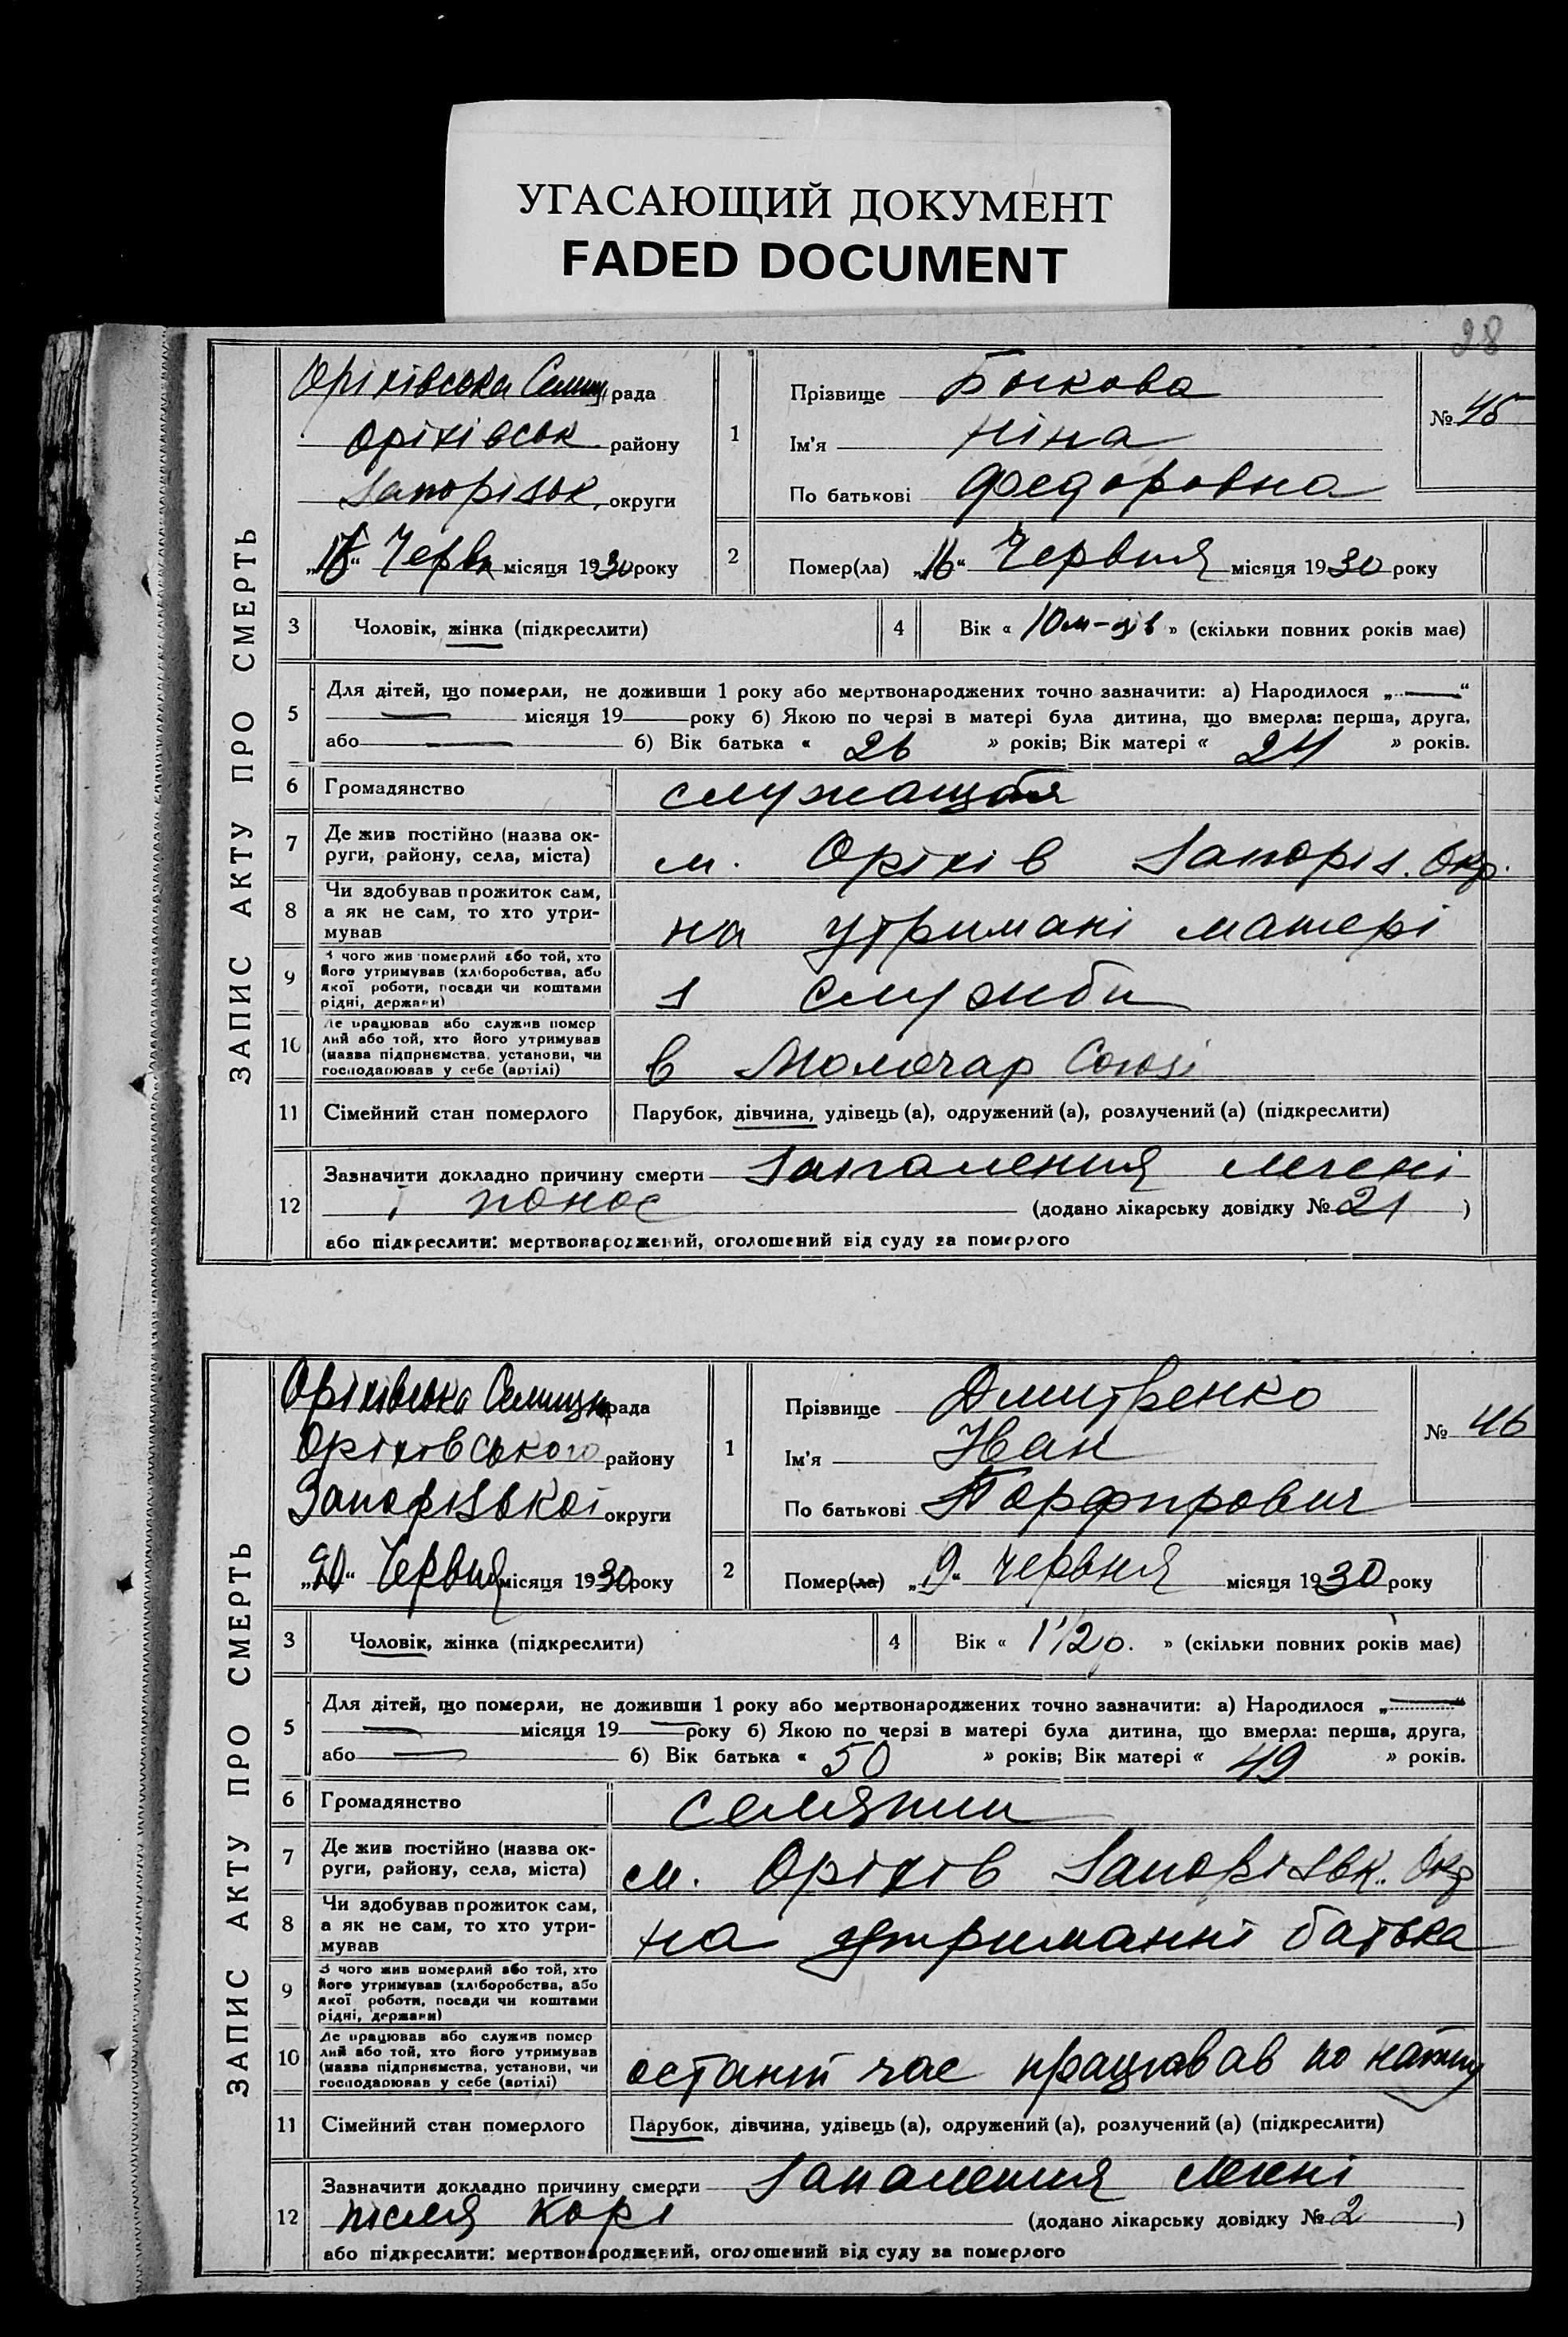 УГАСАЮЩИЙ ДОКУМЕНТ
FADED DOCUMENT
28
ЗАПИС АКТУ ПРО СМЕРТЬ
Оріхівська Селищ рада
Оріхівськ. району
Запорізьк. округи
„ “ Червн місяця 1930 року
1
Прізвище Бикова
Ім'я Ніна
По батькові Федоровна
№ 45
2
Помер(ла) „16“ Червня місяця 1930 року
3
Чоловік, жінка (підкреслити)
4
Вік « 10 м-ців » (скільки повних років має)
5
Для дітей, що померли, не доживши 1 року або мертвонароджених точно зазначити: а) Народилося „—“
— місяця 19—року б) Якою по черзі в матері була дитина, що вмерла: перша, друга,
або — б) Вік батька « 26 » років; Вік матері « 24 » років.
6
Громадянство
служащая
7
Де жив постійно (назва ок-
руги, району, села, міста)
м. Оріхів Запоріз. Окр.
8
Чи здобував прожиток сам,
а як не сам, то хто утри-
мував
на утримані матері
9
З чого жив померлий або той, хто
його утримував (хліборобства, або
якої роботи, посади чи коштами
рідні, держави)
з служби
10
Де працював або служив помер
лий або той, хто його утримував
(назва підприємства, установи, чи
господарював у себе (артілі)
в Молочар Союзі
11
Сімейний стан померлого
Парубок, дівчина, удівець (а), одружений (а), розлучений (а) (підкреслити)
12
Зазначити докладно причину смерти Запалення легені
і понос (додано лікарську довідку № 21 )
або підкреслити: мертвонароджений, оголошений від суду за померлого
ЗАПИС АКТУ ПРО СМЕРТЬ
Оріхівська Селищна рада
Оріхівського району
Запорізької округи
„ “ Червня місяця 1930 року
1
Прізвище Дмитренко
Ім'я Іван
По батькові Порфирович
№ 46
2
Помер(ла) „9“ червня місяця 1930 року
3
Чоловік, жінка (підкреслити)
4
Вік « 1 1/2 р. » (скільки повних років має)
5
Для дітей, що померли, не доживши 1 року або мертвонароджених точно зазначити: а) Народилося „—“
— місяця 19—року б) Якою по черзі в матері була дитина, що вмерла: перша, друга,
або — б) Вік батька « 50 » років; Вік матері « 49 » років.
6
Громадянство
селянин
7
Де жив постійно (назва ок-
руги, району, села, міста)
м. Оріхів Запорізьк. Окр
8
Чи здобував прожиток сам,
а як не сам, то хто утри-
мував
на утриманні батька
9
З чого жив померлий або той, хто
його утримував (хліборобства, або
якої роботи, посади чи коштами
рідні, держави)
10
Де працював або служив помер
лий або той, хто його утримував
(назва підприємства, установи, чи
господарював у себе (артілі)
останій час працював по найму
11
Сімейний стан померлого
Парубок, дівчина, удівець (а), одружений (а), розлучений (а) (підкреслити)
12
Зазначити докладно причину смерти Запалення легені
після корі (додано лікарську довідку № 2 )
або підкреслити: мертвонароджений, оголошений від суду за померлого